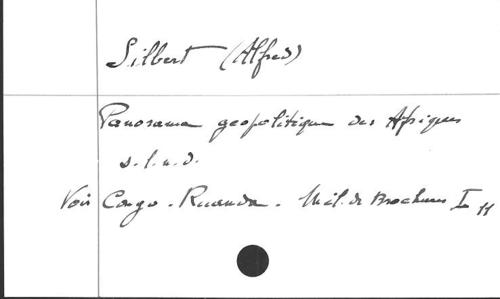 Silbert (Alfred)
Panorama géopolitique des Afriques
s.l.n.d.
Voir Congo - Ruanda - Mél. de Brochures I 11